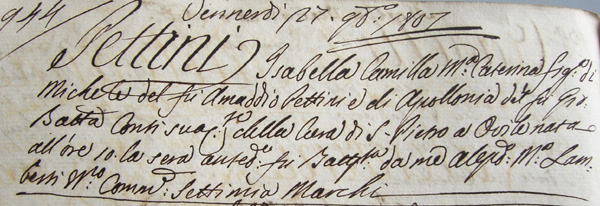 944
Vennerdi 27. 9bre. 1807
Pettini Isabella Camilla Ma. Caterina figa. di
Michele del fu Amaddio Pettini e di Apollonia del fu Gio:
Batta Conti sua della Cura di S. Pietro a nata
all'ore 10. la sera anteda. fu Battta. da me Alesso. Ma. Lam-
berti Comme. Settimia Marchi